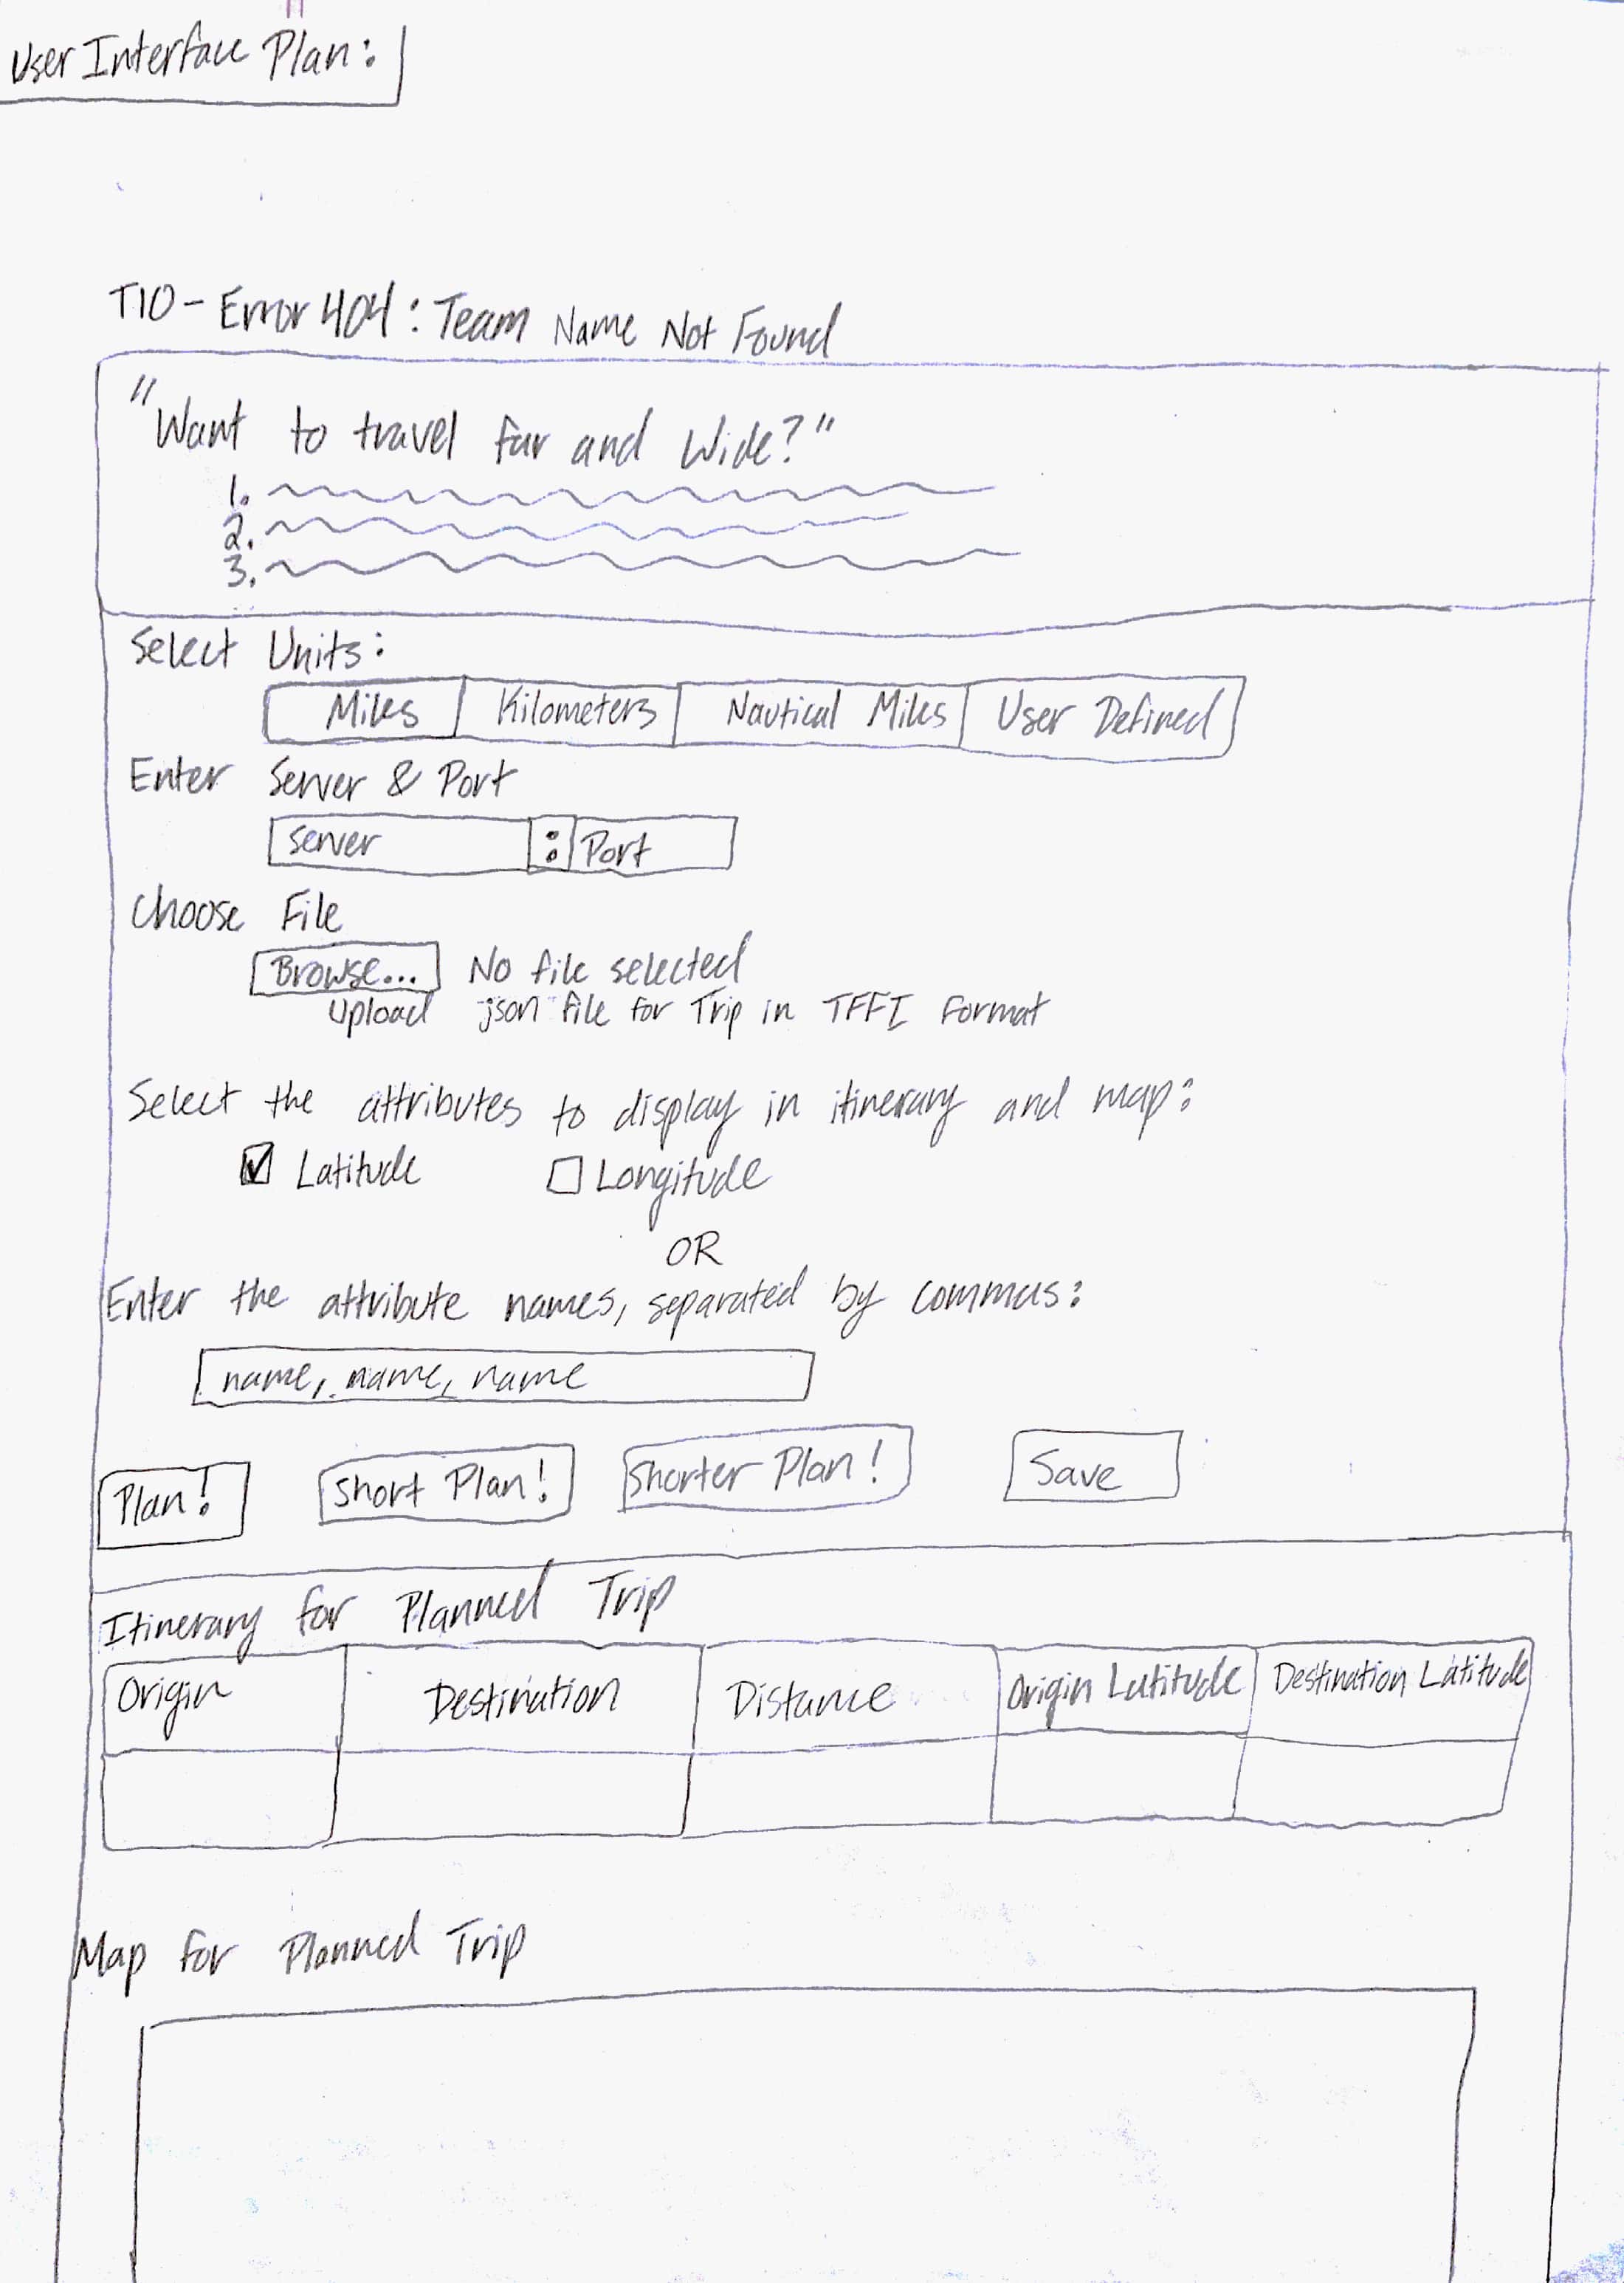 User Interface Plan:
T10 - Error 404: Team Name Not Found
"Want to travel far and Wide?"
1.
2.
3.
Select Units:
Miles Kilometers Nautical Miles User Defined
Enter Server & Port
Server : Port
Choose File
Browse... No file selected
Upload json file for Trip in TFFI format
Select the attributes to display in itinerary and map:
Latitude Longitude
OR
Enter the attribute names, separated by commas:
name, name, name
Plan! Short Plan! Shorter Plan! Save
Itinerary for Planned Trip
Origin Destination Distance Origin Latitude Destination Latitude
Map for Planned Trip